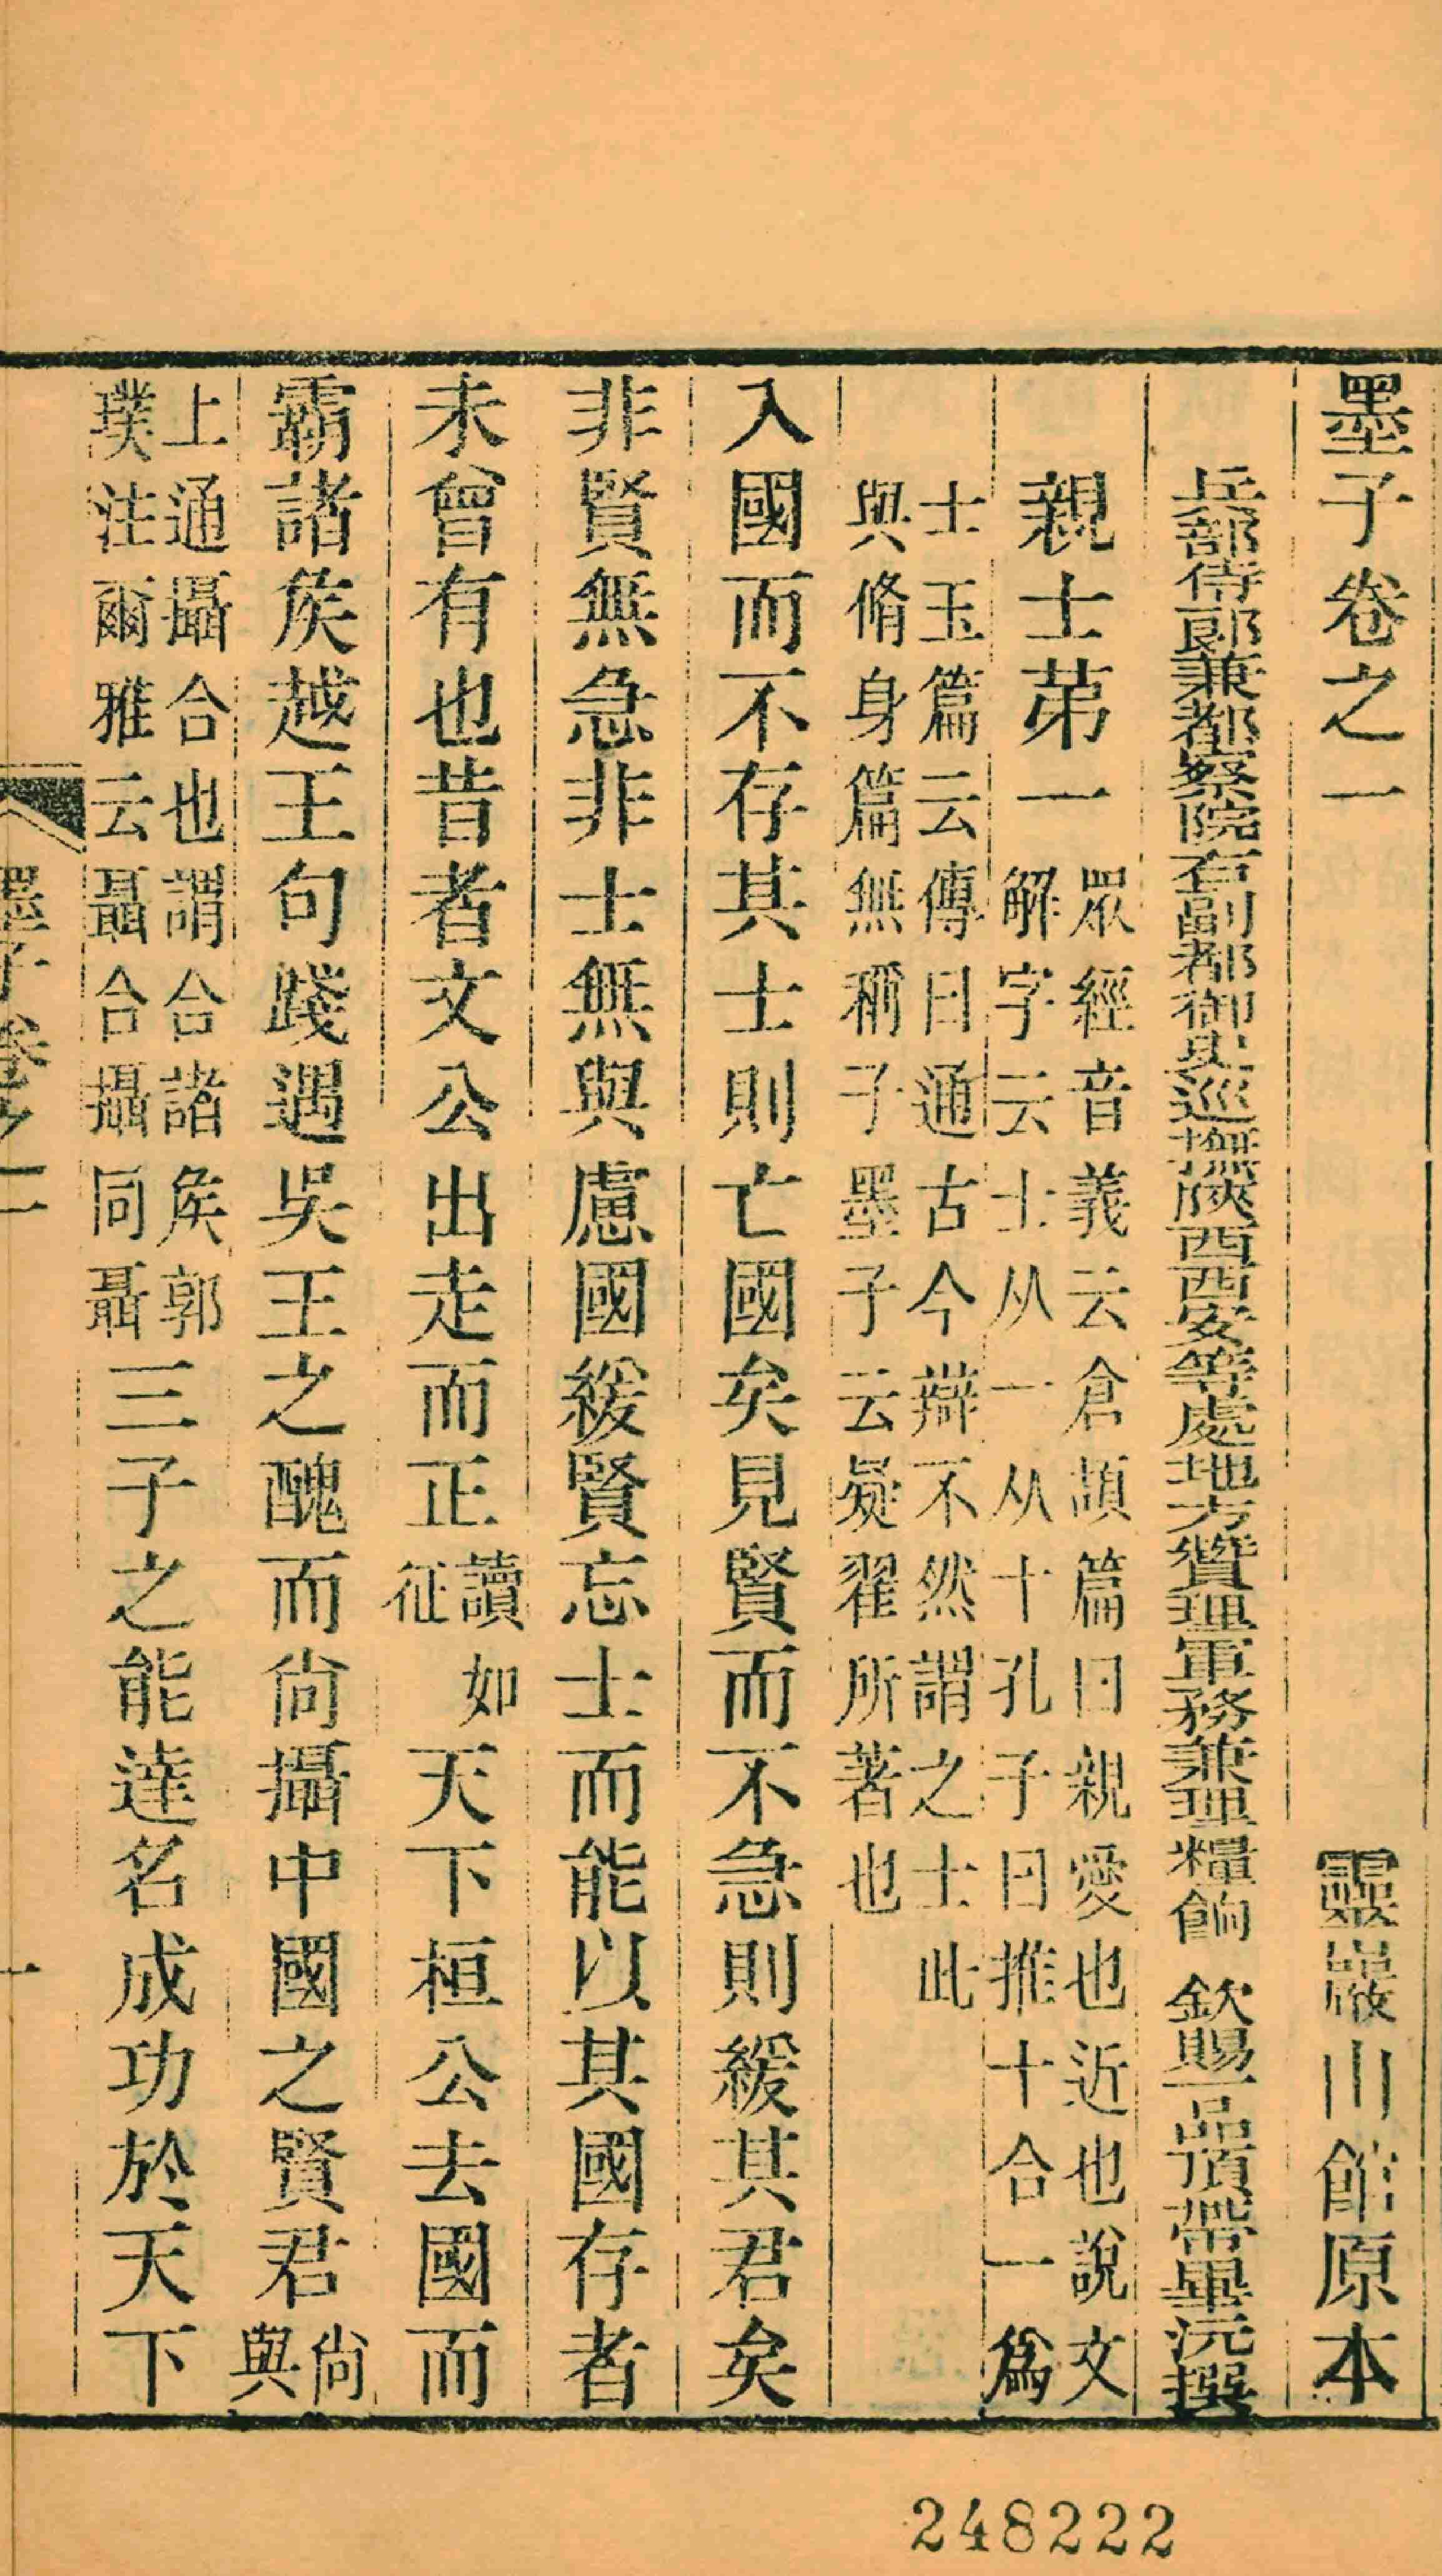 墨子卷之一 靈巖山館原本
兵部侍郎兼都察院右副都御史巡撫陝西西安等處地方贊理軍務兼理糧餉 欽賜一品頂帶畢沅撰
親士苐一 眾經音義云倉頡篇曰親愛也近也說文
解字云士从一从十孔子曰推十合一爲
士玉篇云傳曰通古今辯不然謂之士此
與脩身篇無稱子墨子云疑翟所著也
入國而不存其士則亡國矣見賢而不急則緩其君矣
非賢無急非士無與慮國緩賢忘士而能以其國存者
未曾有也昔者文公出走而正讀如征天下桓公去國而
霸諸矦越王句踐遇吳王之醜而尙攝中國之賢君尙與
上通攝合也謂合諸矦郭
璞注爾雅云聶合攝同聶三子之能達名成功於天下
墨子卷之一
一
248222